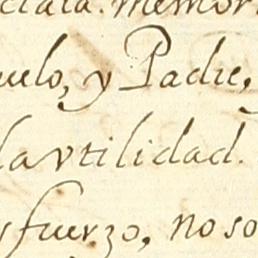 clara. memor
uelo, y Padre,
la vtilidad.
sfuerzo, no so